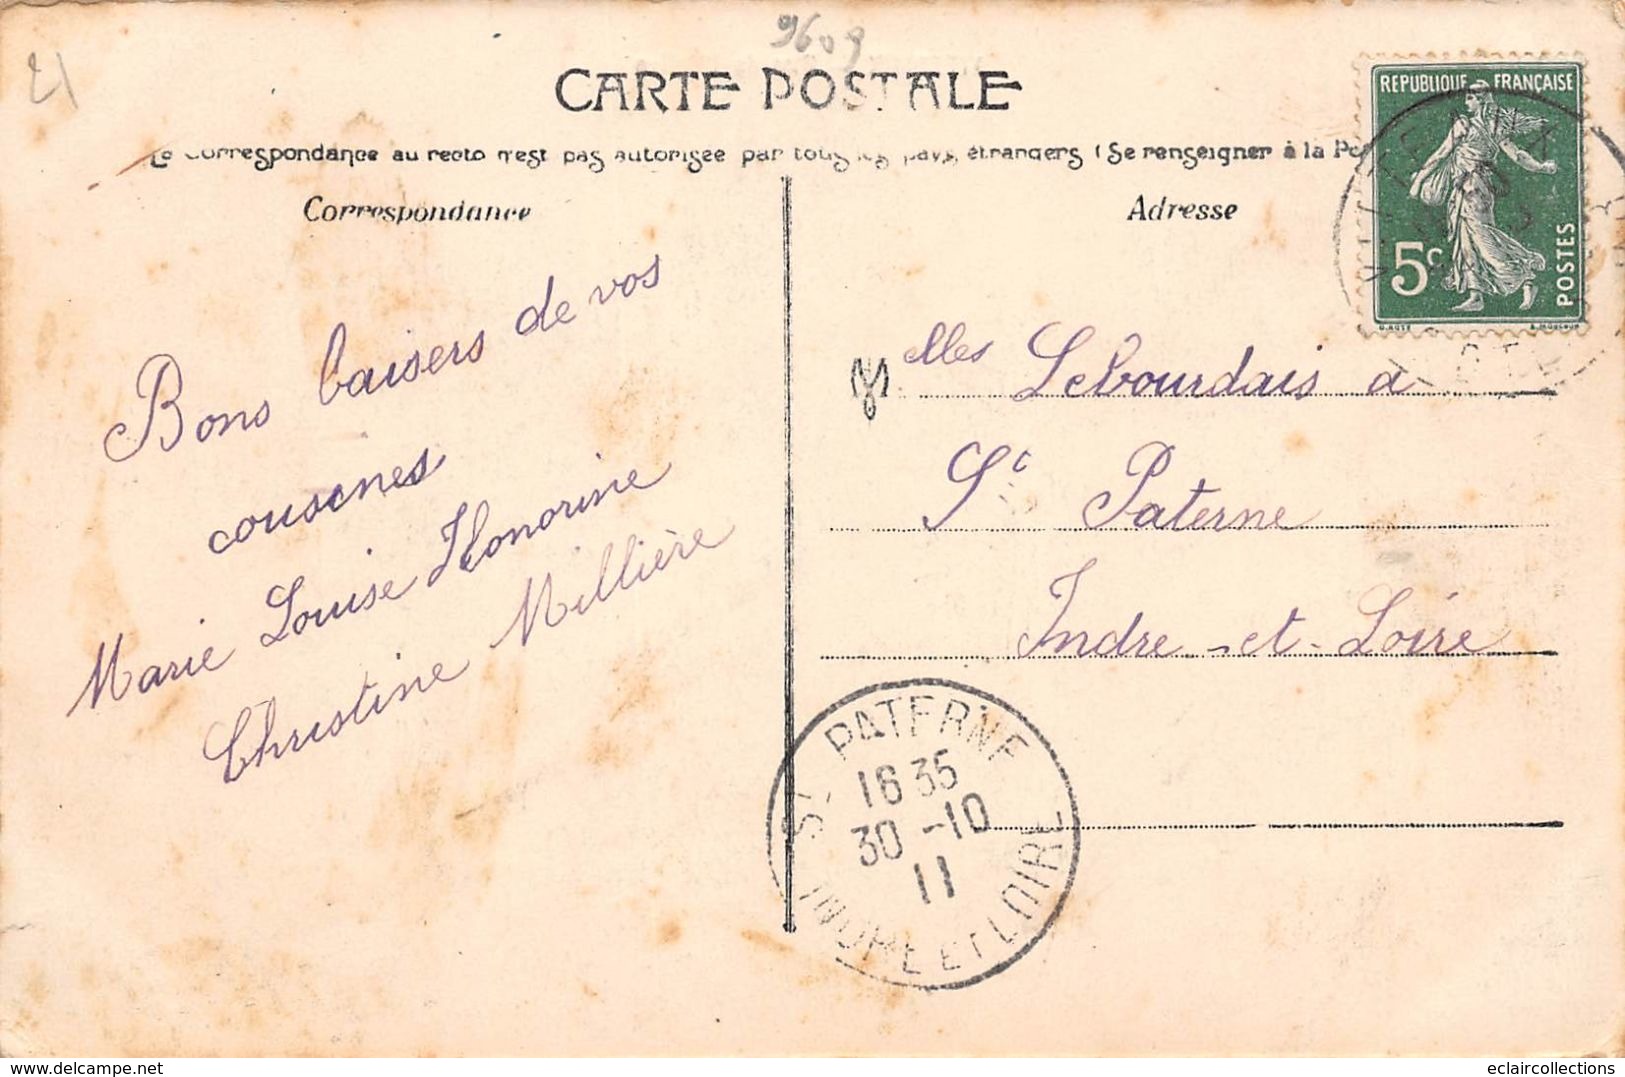 21
9609
CARTE POSTALE
La Correspondance au recto n'est pas autorisée par tous les pays étrangers (Se renseigner à la Po
Correspondance
Adresse
REPUBLIQUE FRANÇAISE
5c
POSTES
O. ROTY
Bons baisers de vos
cousines
Marie Louise Honorine
Christine Millière
Melles Lebourdais a
St Paterne
Indre-et-Loire
ST PATERNE
16 35
30 -10
11
INDRE ET LOIRE
eclaircollections